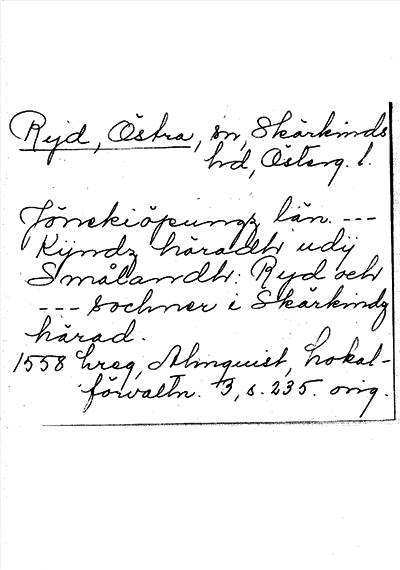 Ryd, Östra, sn, Skärkinds
hd, Österg. l.
Jönekiöpungz län. ---
Kyndz häradh udij
Smålandh. Ryd och
--- sochner i Skärkindz
härad.
1558 hreg, Almquist, Lokal-
förvaltn. 3, s. 235. orig.